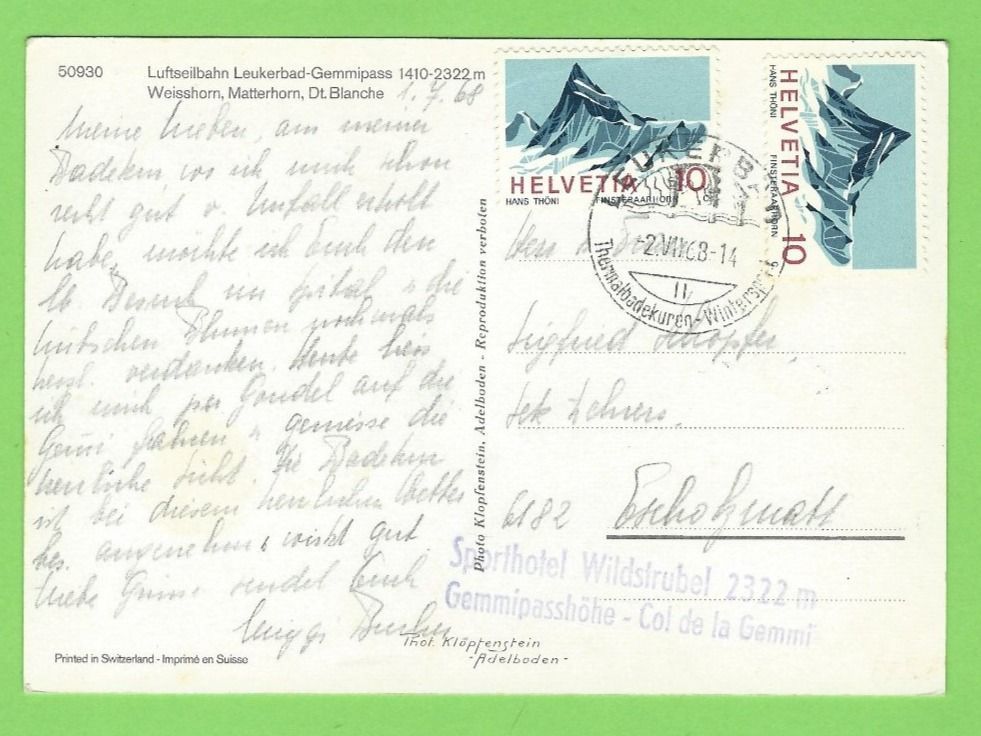 50930
Luftseilbahn Leukerbad-Gemmipass 1410-2322 m
Weisshorn, Matterhorn, Dt. Blanche
1.7.68
Meine Lieben, am meiner
Badekur, wo ich mich schon
recht gut v. Unfall erholt
habe, möchte ich Euch den
lb. Besuch im Spital u. die
hübschen Blumen nochmals
herzl. verdanken. Heute liess
ich mich per Gondel auf die
Gemi fahren u. geniesse die
herrliche Sicht. Die Badekur
ist bei diesem herrlichen Wetter
bes. angenehm u. wirkt gut
Liebe Grüsse sendet Euch
HELVETIA 10
HANS THÖNI FINSTERAARHORN
HELVETIA 10
HANS THÖNI FINSTERAARHORN
LEUKERBAD
-2.VII.68-14
Thermalbadekuren - Wintersport
Siegfried
Sek Lehrers
6182 Escholzmatt
Photo Klopfenstein, Adelboden - Reproduktion verboten
Sporthotel Wildstrubel 2322 m
Gemmipasshöhe - Col de la Gemmi
Phot. Klopfenstein
- Adelboden -
Printed in Switzerland - Imprimé en Suisse